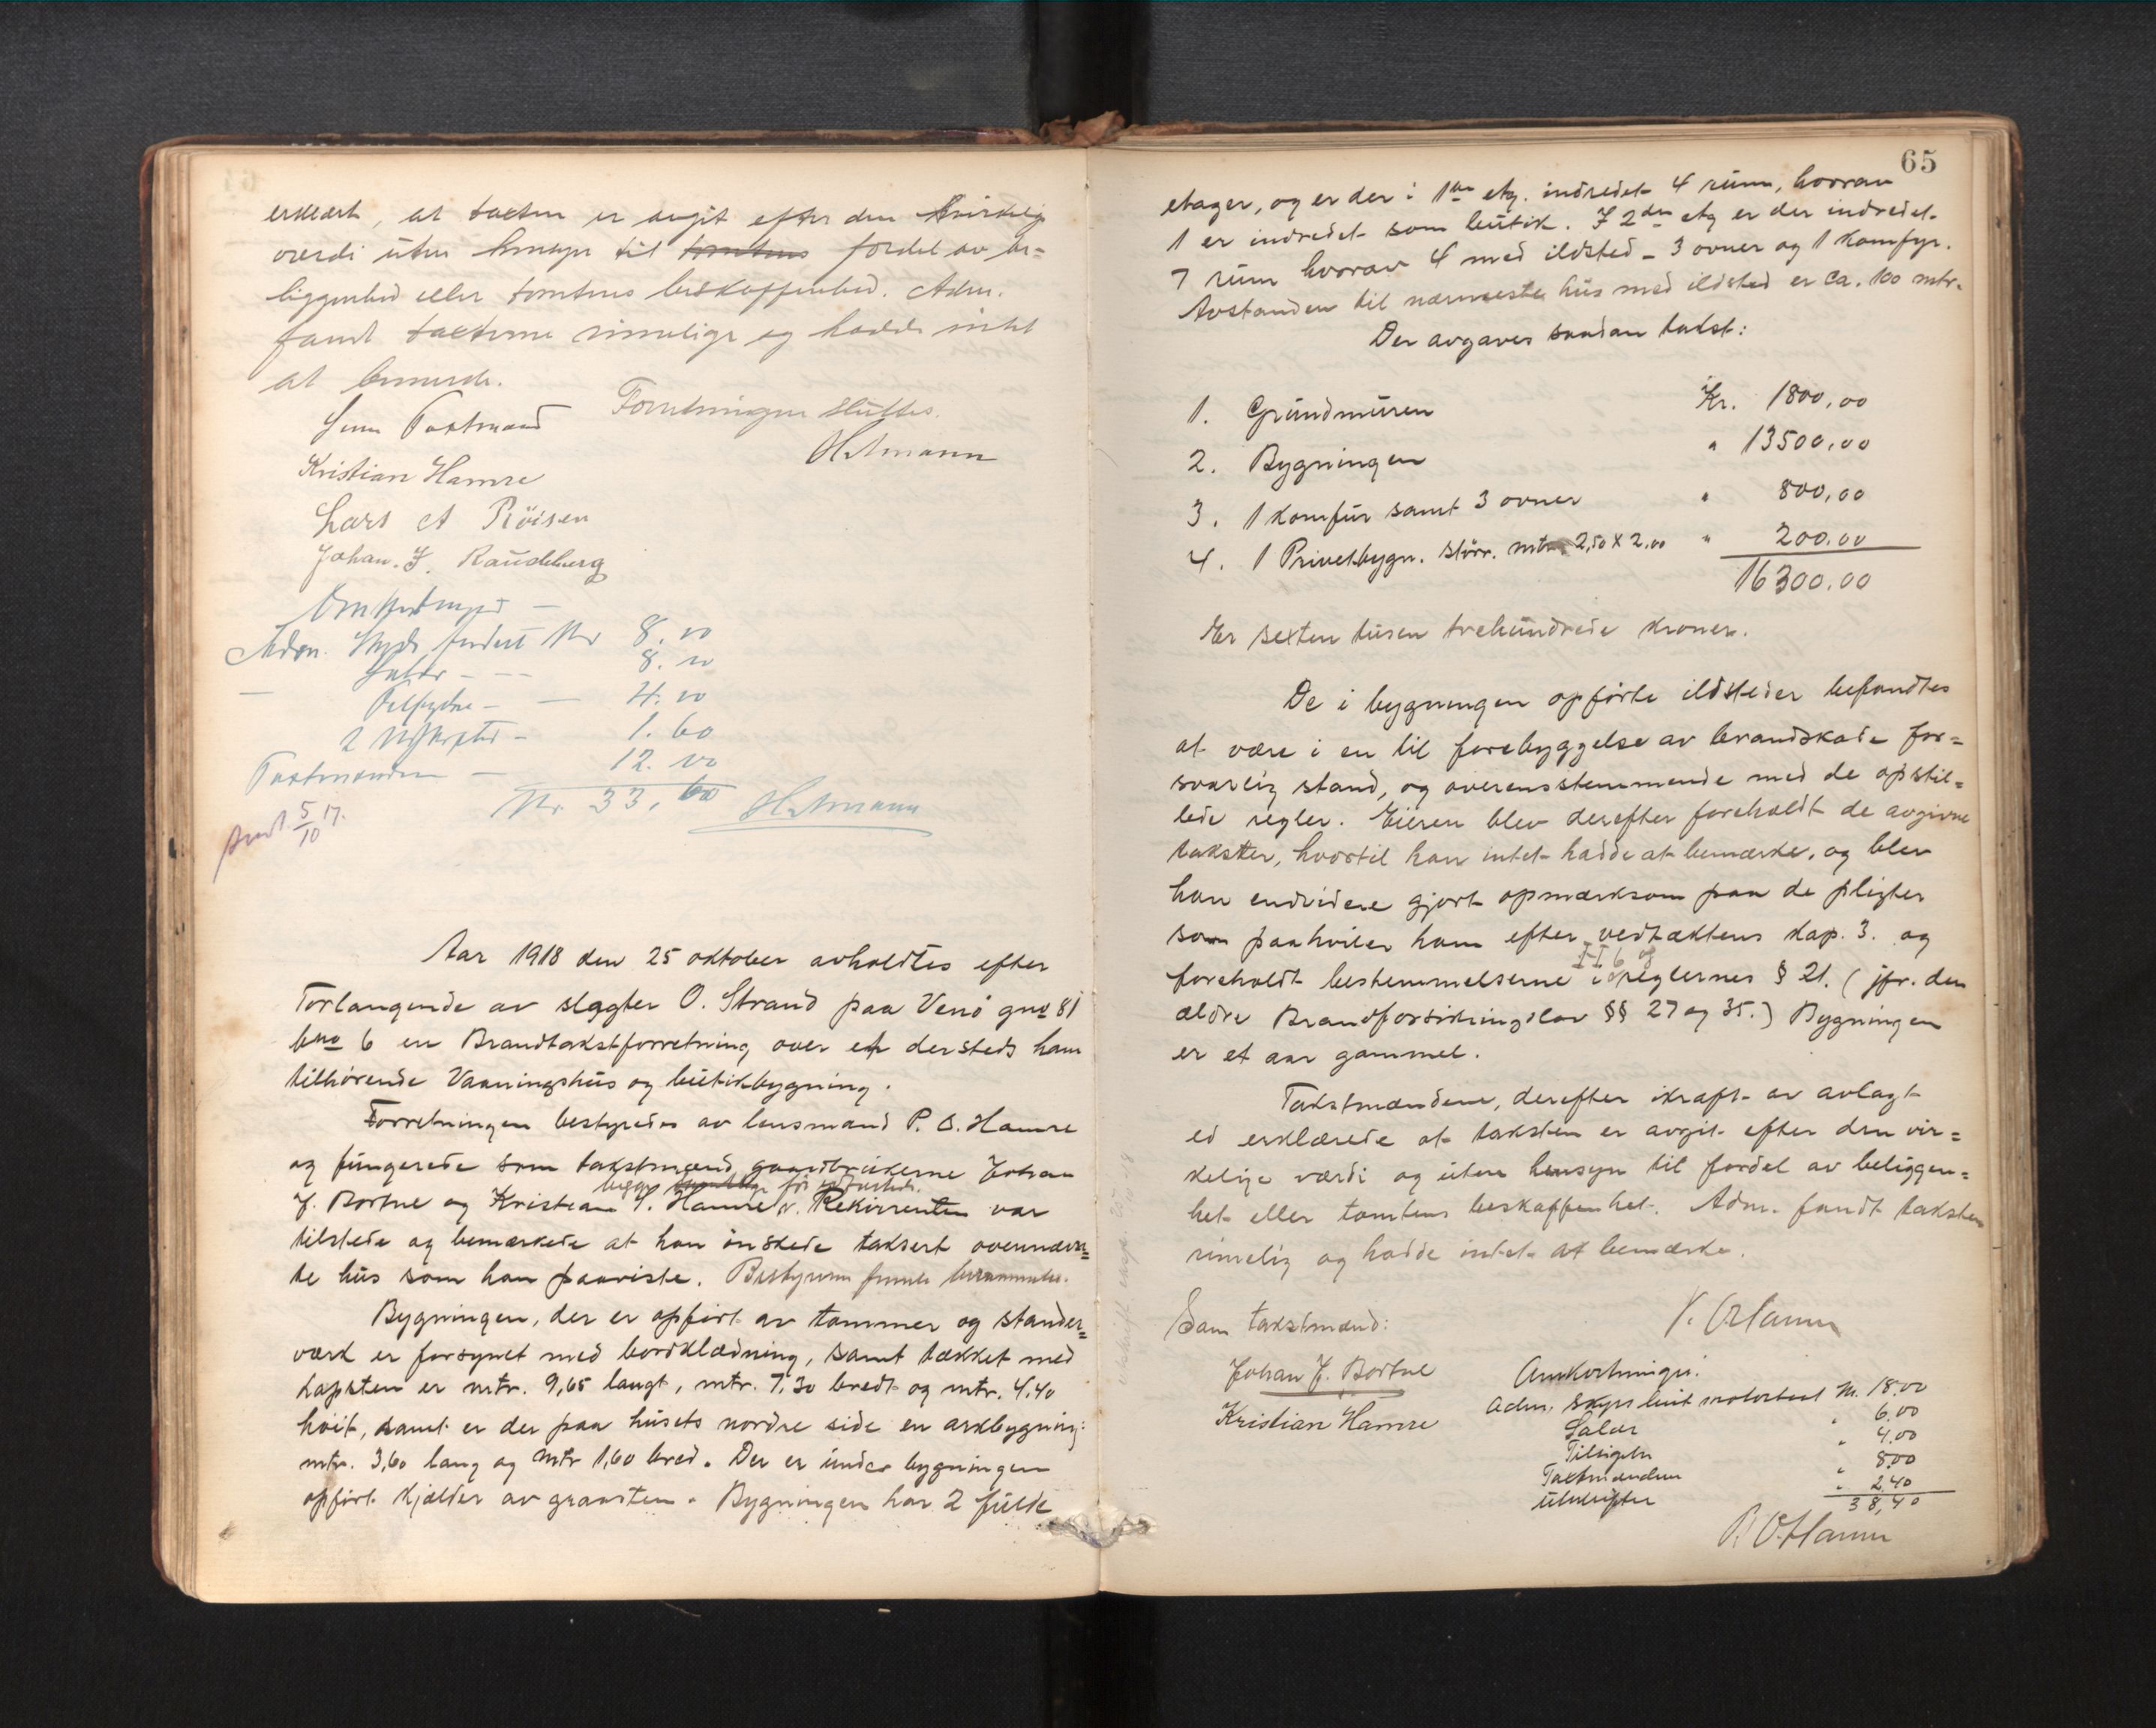 erklært, at taxten er avgit efter den virkelige
værdi uten hensyn til tomtens fordel av be-
liggenhed eller tomtens beskaffenhed. Adm.
fandt taxterne rimelige og hadde intet
at bemerke.
Forretningen sluttes.
Som Taxtmænd
Kristian Hamre
Lars A Röisen
Johan. J. Raudeberg
Omkostninger
Adm. Skyds
8.00
Salær - - -
8.00
4.00
1.60
Taxtmænden -
12.00
Kr. 33,60
5/10 17.
Aar 1918 den 25 oktober avholdtes efter
Forlangende av slagter O. Strand paa gno 81
bno 6 en Brandtakstforretning over et dersteds ham
tilhørende Vaaningshus og butikbygning.
Forretningen bestyredes av lensmand P. O. Hamre
og fungerede som takstmænd gaardbrukerne Johan
begge før
J. Bortne og Kristian S. Hamre. Rekvirenten var
tilstede og bemærkede at han ønskede taksert ovennævn=
te hus som han paaviste.
Bygningen, der er opført av tømmer og stander=
værk er forsynet med bordklædning, samt tækket med
tagsten er mtr. 9,65 langt, mtr. 7,30 bredt og mtr. 4.40
høit, samt er der paa husets nordre side en arkbygning:
mtr. 3,60 lang og mtr 1,60 bred. Der er under bygningen
opført kjælder av graasten. Bygningen har 2 fulde
65
etager, og er der i 1ste etg. indredet 4 rum, hvorav
1 er indredet som butik. I 2den etg er der indredet
7 rum hvorav 4 med ildsted - 3 ovner og 1 komfyr.
Avstanden til nærmeste hus med ildsted er ca. 100 mtr.
Der avgaves saadan takst:
1. Grundmuren Kr. 1800,00
2. Bygningen " 13500,00
3. 1 Komfur samt 3 ovner " 800,00
4. 1 Privetbygn. størr. mtr. 2,50 x 2,00 " 200.00
16300.00
Er sexten tusen trehundrede kroner.
De i bygningen opførte ildsteder befandtes
at være i en til forebyggelse av brandskade for=
svarlig stand, og overensstemmende med de opstil=
lede regler. Eieren blev derefter foreholdt de avgivne
takster, hvortil han intet hadde at bemærke, og blev
han endvidere gjort opmærksom paa de pligter
som paahviler ham efter vedtæktens kap. 3. og
I-I 6 og
foreholdt bestemmelserne i reglernes § 21. (jfr. den
ældre Brandforsikringslov §§ 27 og 35.) Bygningen
er et aar gammel.
Takstmændene, derefter ikraft av avlagt
ed erklærede at taksten er avgit efter den vir=
kelige værdi og uten hensyn til fordel av beliggen=
het eller tomtens beskaffenhet. Adm. fandt taksten
rimelig og hadde intet at bemærke.
Som takstmænd:
P. O. Hamre
Johan J. Bortne
Kristian Hamre
Omkostninger:
Adm. skyss leiet motorbaat Kr. 18.00
Salær " 6.00
Tilsigeln " 4.00
Taxtmænden " 8.00
Utskrifter " 2.40
38,40
P. O. Hamre